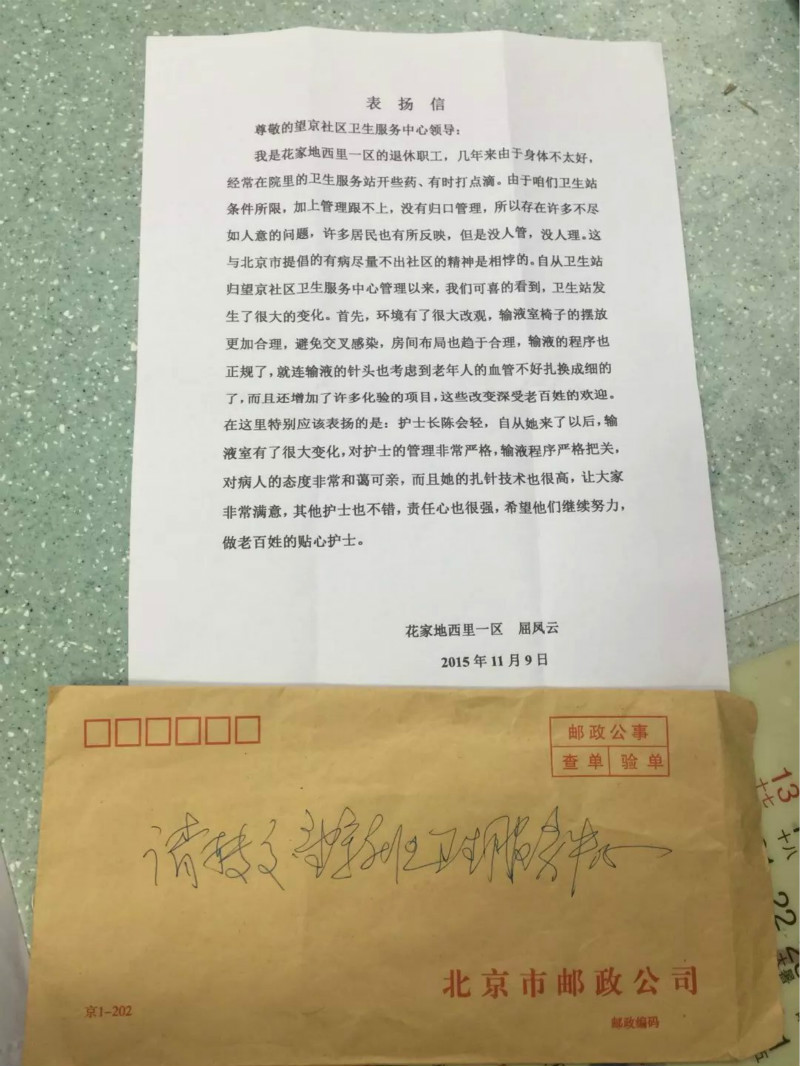 表 扬 信
尊敬的望京社区卫生服务中心领导：
我是花家地西里一区的退休职工，几年来由于身体不太好，
经常在院里的卫生服务站开些药、有时打点滴。由于咱们卫生站
条件所限，加上管理跟不上，没有归口管理，所以存在许多不尽
如人意的问题，许多居民也有所反映，但是没人管，没人理。这
与北京市提倡的有病尽量不出社区的精神是相悖的。自从卫生站
归望京社区卫生服务中心管理以来，我们可喜的看到，卫生站发
生了很大的变化。首先，环境有了很大改观，输液室椅子的摆放
更加合理，避免交叉感染，房间布局也趋于合理，输液的程序也
正规了，就连输液的针头也考虑到老年人的血管不好扎换成细的
了，而且还增加了许多化验的项目，这些改变深受老百姓的欢迎。
在这里特别应该表扬的是：护士长陈会轻，自从她来了以后，输
液室有了很大变化，对护士的管理非常严格，输液程序严格把关，
对病人的态度非常和蔼可亲，而且她的扎针技术也很高，让大家
非常满意，其他护士也不错，责任心也很强，希望他们继续努力，
做老百姓的贴心护士。
花家地西里一区 屈凤云
2015 年 11 月 9 日
邮政公事
查单 验单
请转交望京社区卫生服务中心
北京市邮政公司
京1-202
邮政编码
13
十七
十八
22